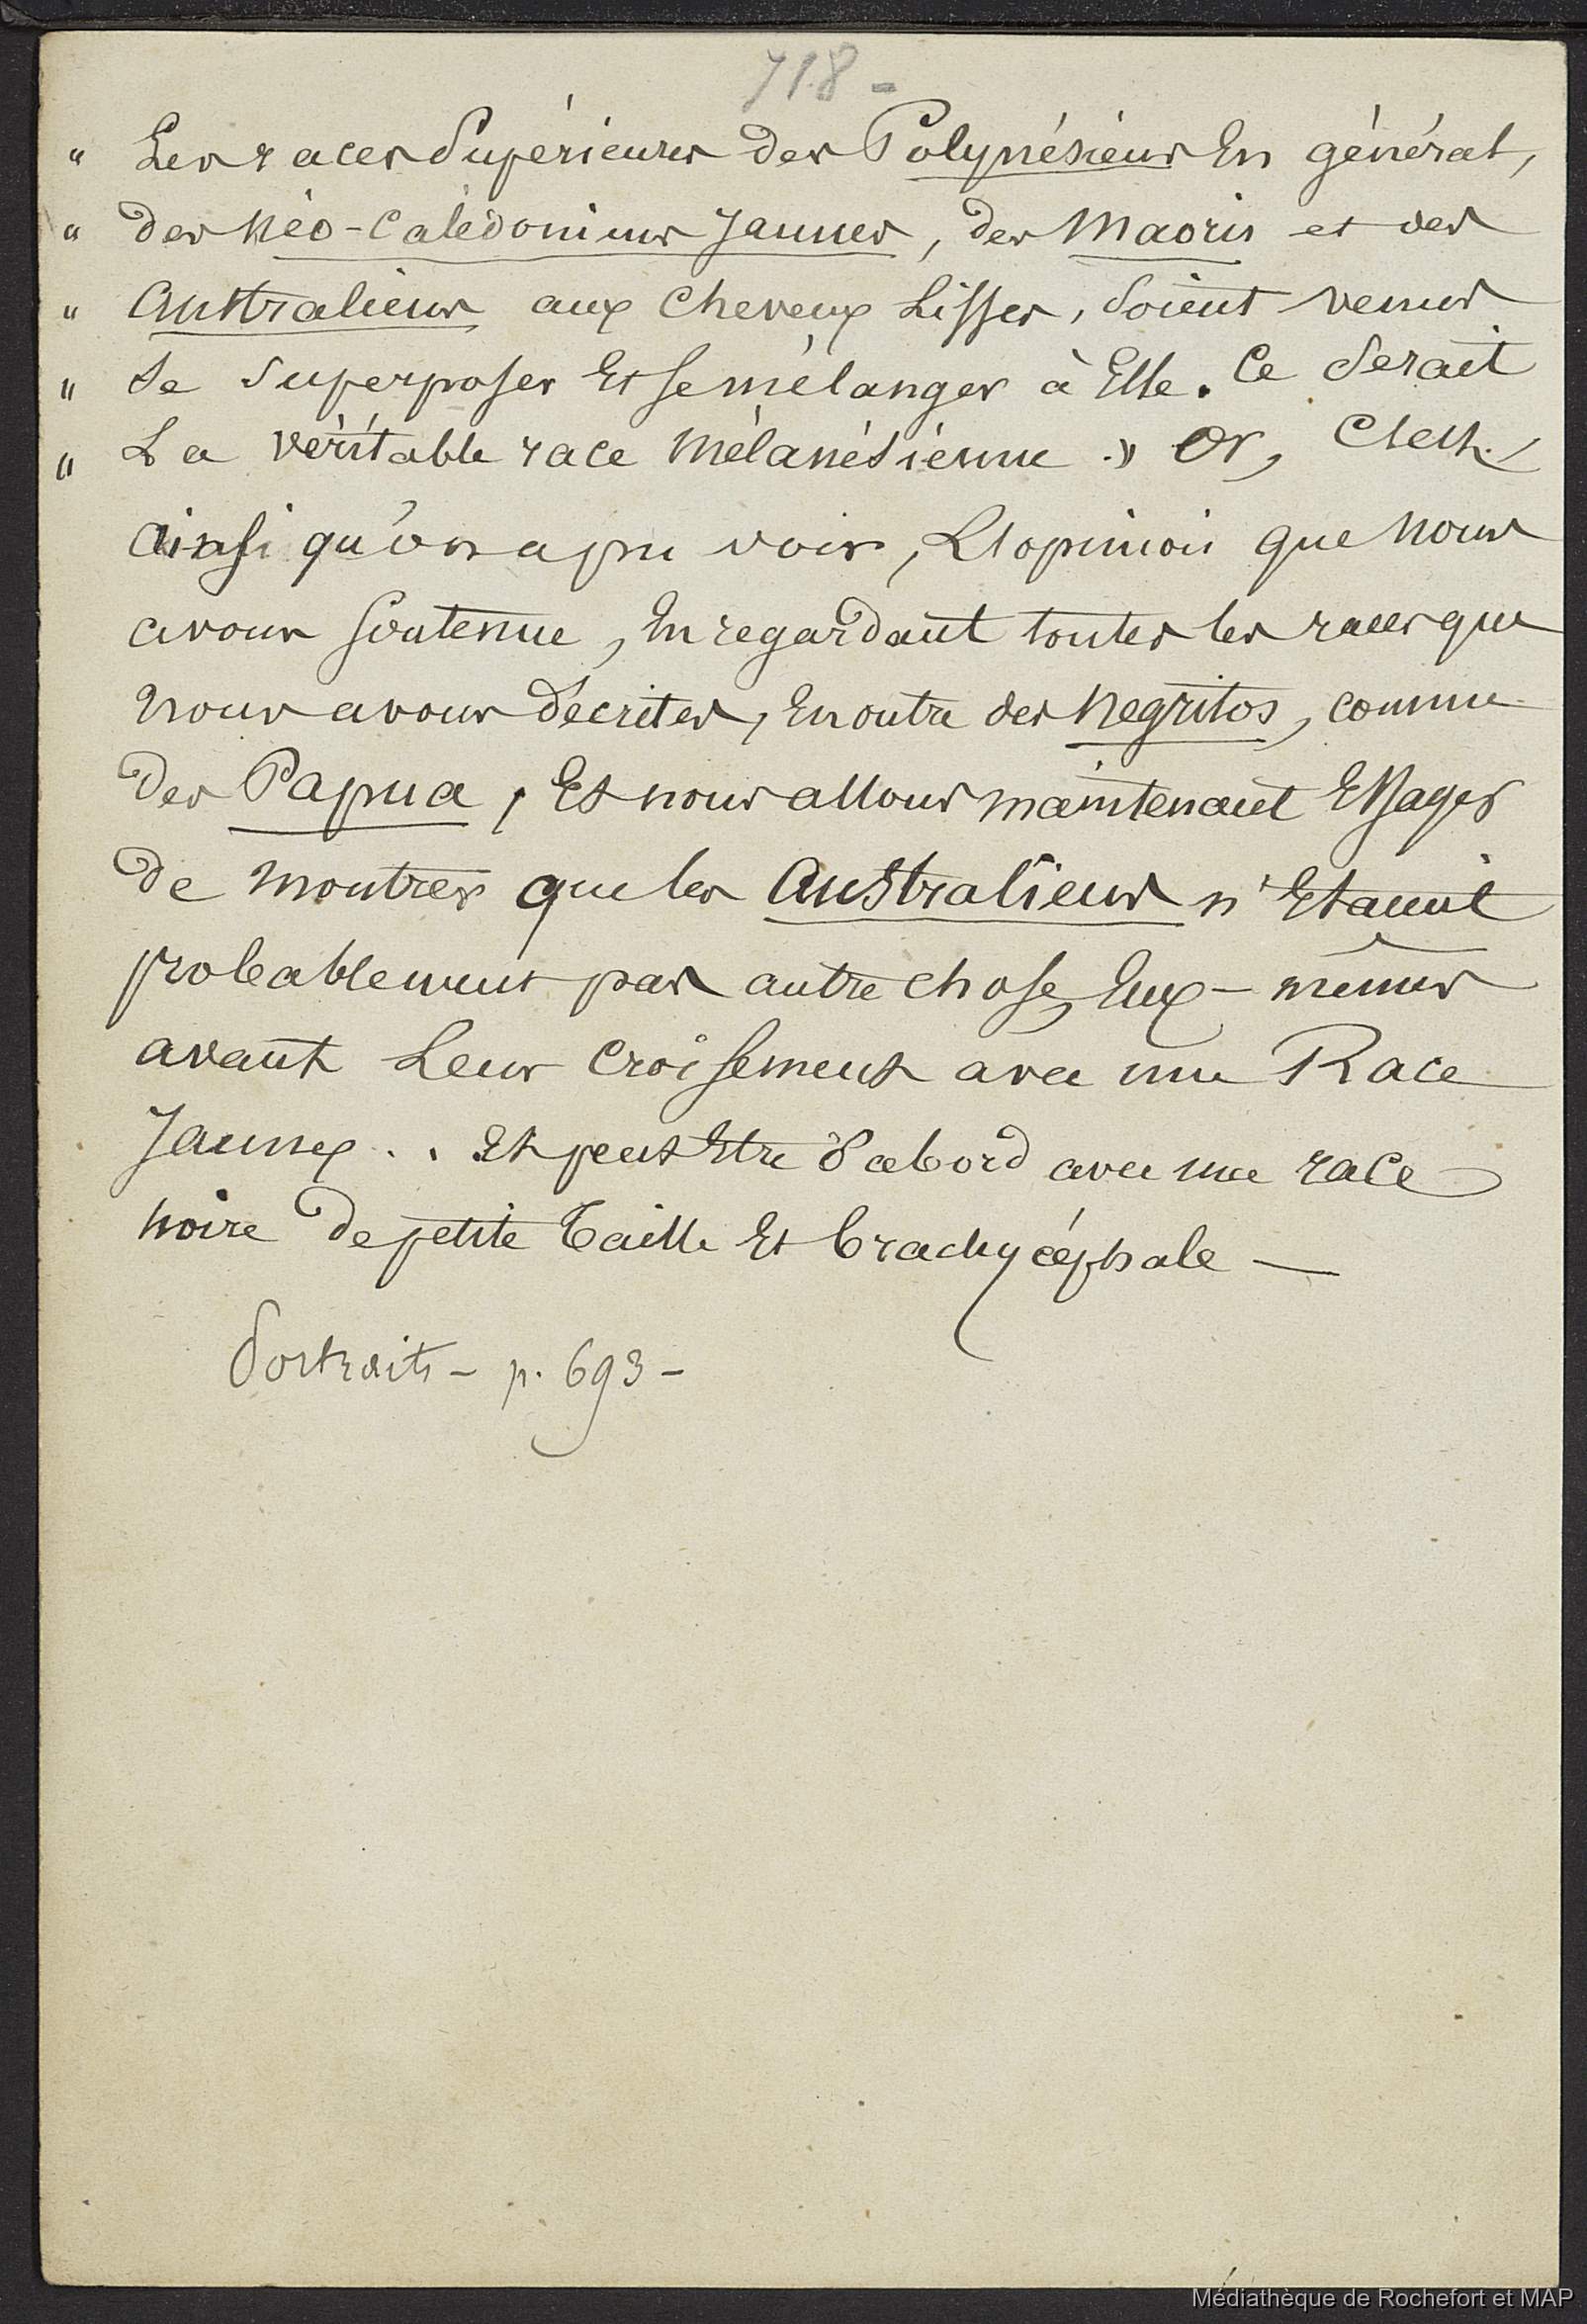 718 -
" Les races Supérieures des Polynésiens En général,
" des Néo-Calédoniens Jaunes, des Maoris et des
" Australiens aux Cheveux Lisses, Soient venus
" se Superposer Et se mélanger à Elle. Ce Serait
" La véritable race Mélanésienne » Or, C'est,
ainsi qu'on a pu voir, L'opinion que nous
avons Soutenue, En regardant toutes les races que
nous avons décrites, En outre des Negritos, comme
des Papua, Et nous allons maintenant Essayer
de montrer que les Australiens n'Etaient
probablement pas autre chose, Eux-mêmes
avant Leur Croisement avec une Race
Jaune, . . Et peut Etre d'abord avec une race
noire de petite Taille Et brachycéphale —
Portraits - p. 693 -
Médiathèque de Rochefort et MAP